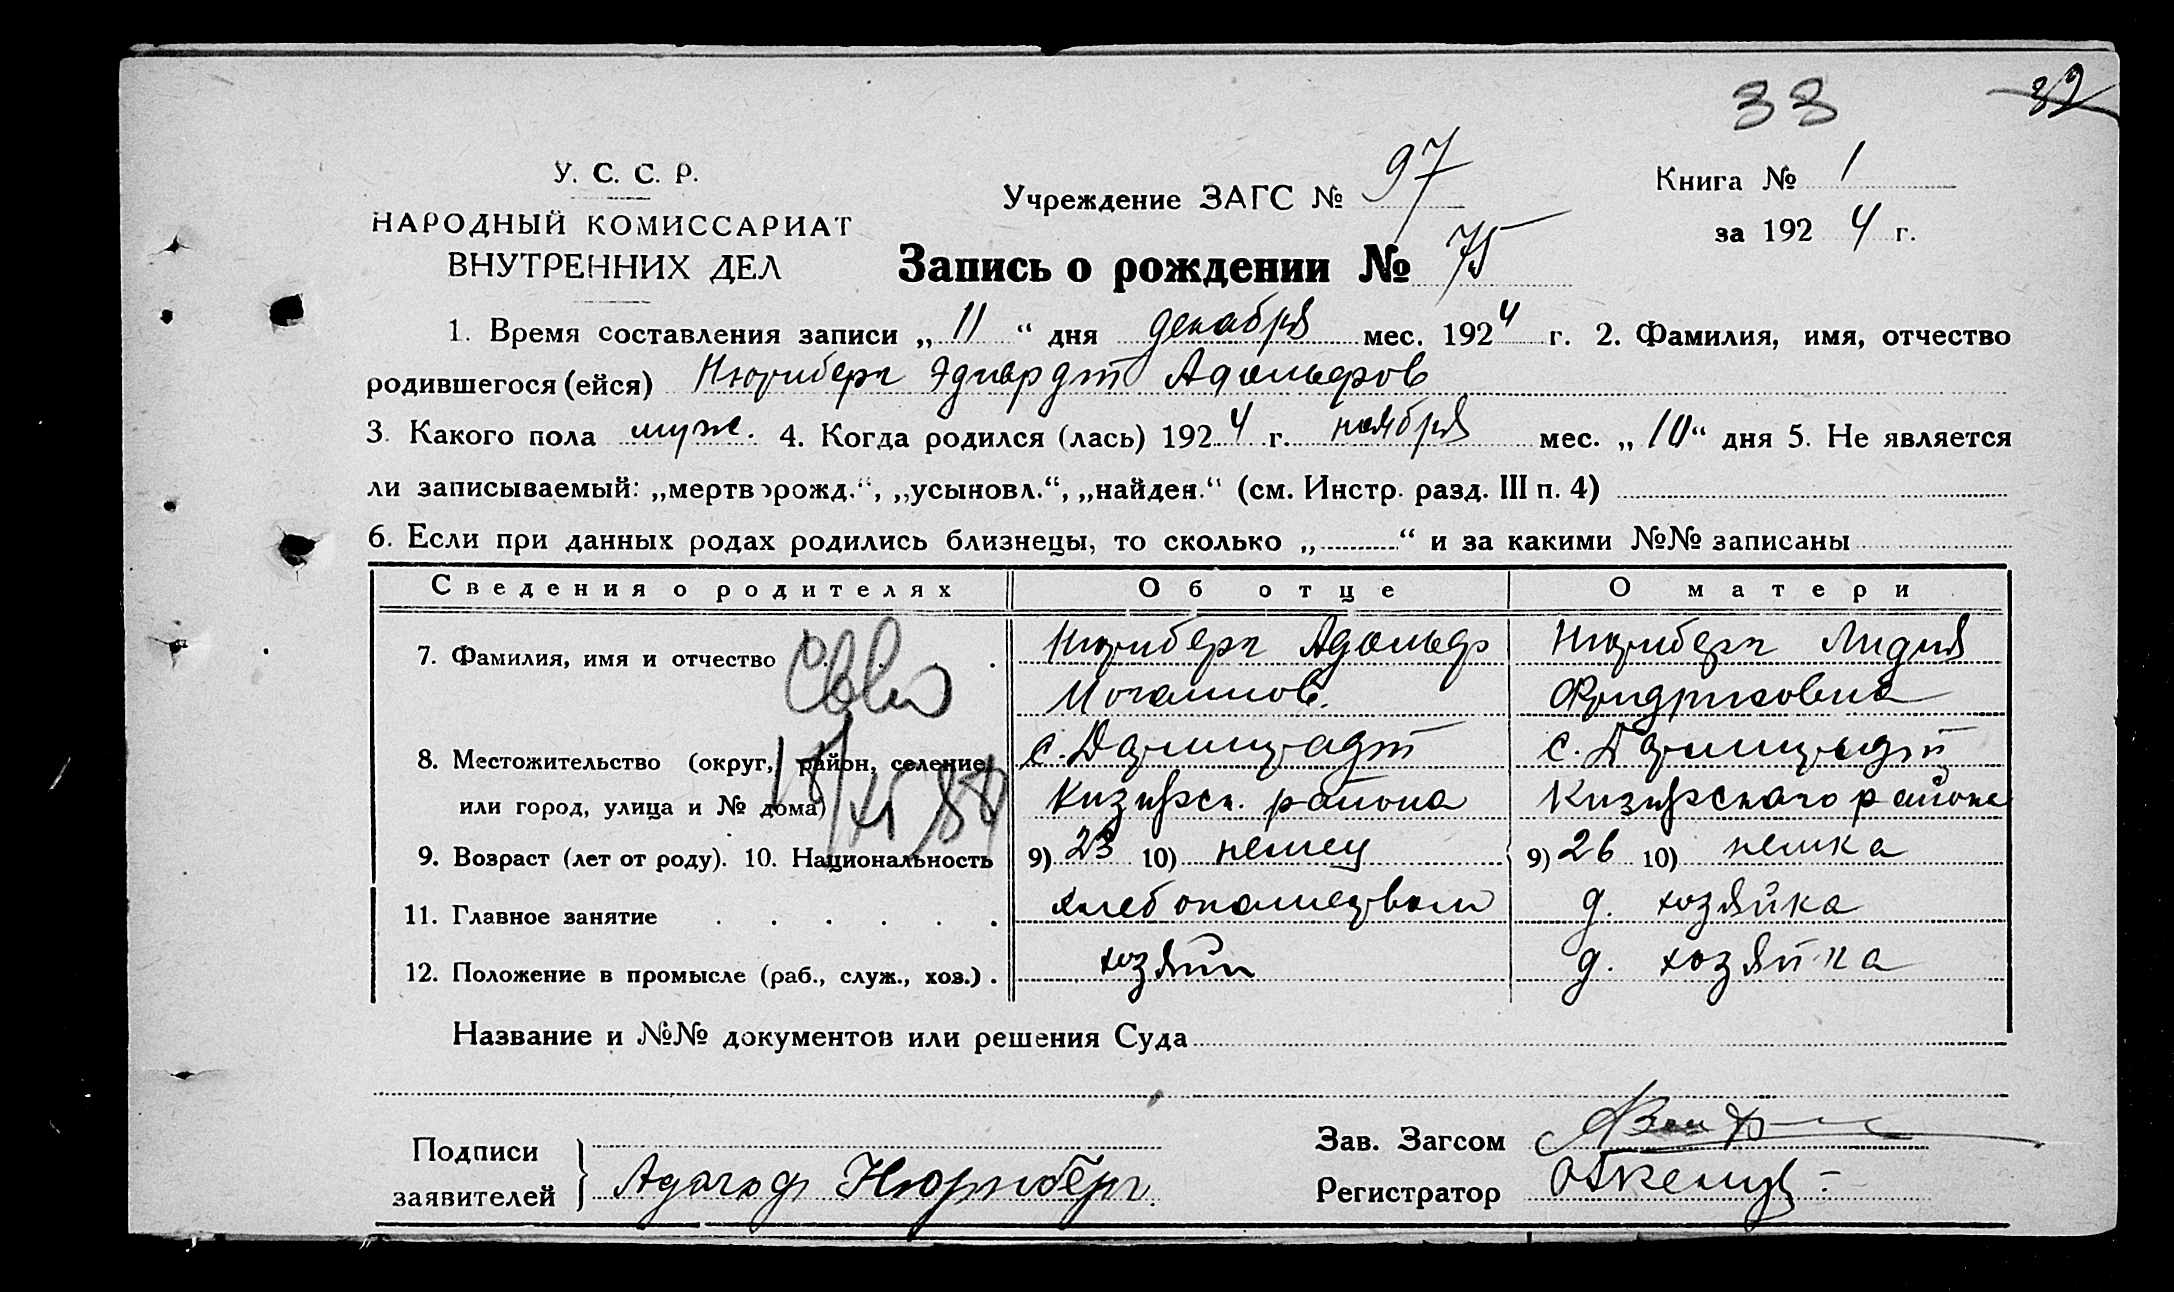 33 32
У. С. С. Р.
НАРОДНЫЙ КОМИССАРИАТ
ВНУТРЕННИХ ДЕЛ
Учреждение ЗАГС № 97
Книга № 1
за 1924 г.
Запись о рождении № 75
1. Время составления записи „11“ дня декабря мес. 1924 г. 2. Фамилия, имя, отчество
родившегося (ейся) Нюрнберг Эдуардт Адольфов
3. Какого пола муж. 4. Когда родился (лась) 1924 г. ноября мес. „10“ дня 5. Не является
ли записываемый: „мертворожд.“, „усыновл.“, „найден.“ (см. Инстр. разд. III п. 4)
6. Если при данных родах родились близнецы, то сколько „ “ и за какими №№ записаны
Сведения о родителях Об отце О матери
7. Фамилия, имя и отчество Нюрнберг Адольф Нюрнберг Лидия
Фридриховна
8. Местожительство (округ, район, селение, с. Дармштадт с. Дармштадт
или город, улица и № дома) района района
9. Возраст (лет от роду). 10. Национальность 9) 23 10) немец 9) 26 10) немка
11. Главное занятие хлебопашество д. хозяйка
12. Положение в промысле (раб., служ., хоз.) хозяин д. хозяйка
Название и №№ документов или решения Суда
Подписи
заявителей Адольф Нюрнберг
Зав. Загсом
Регистратор